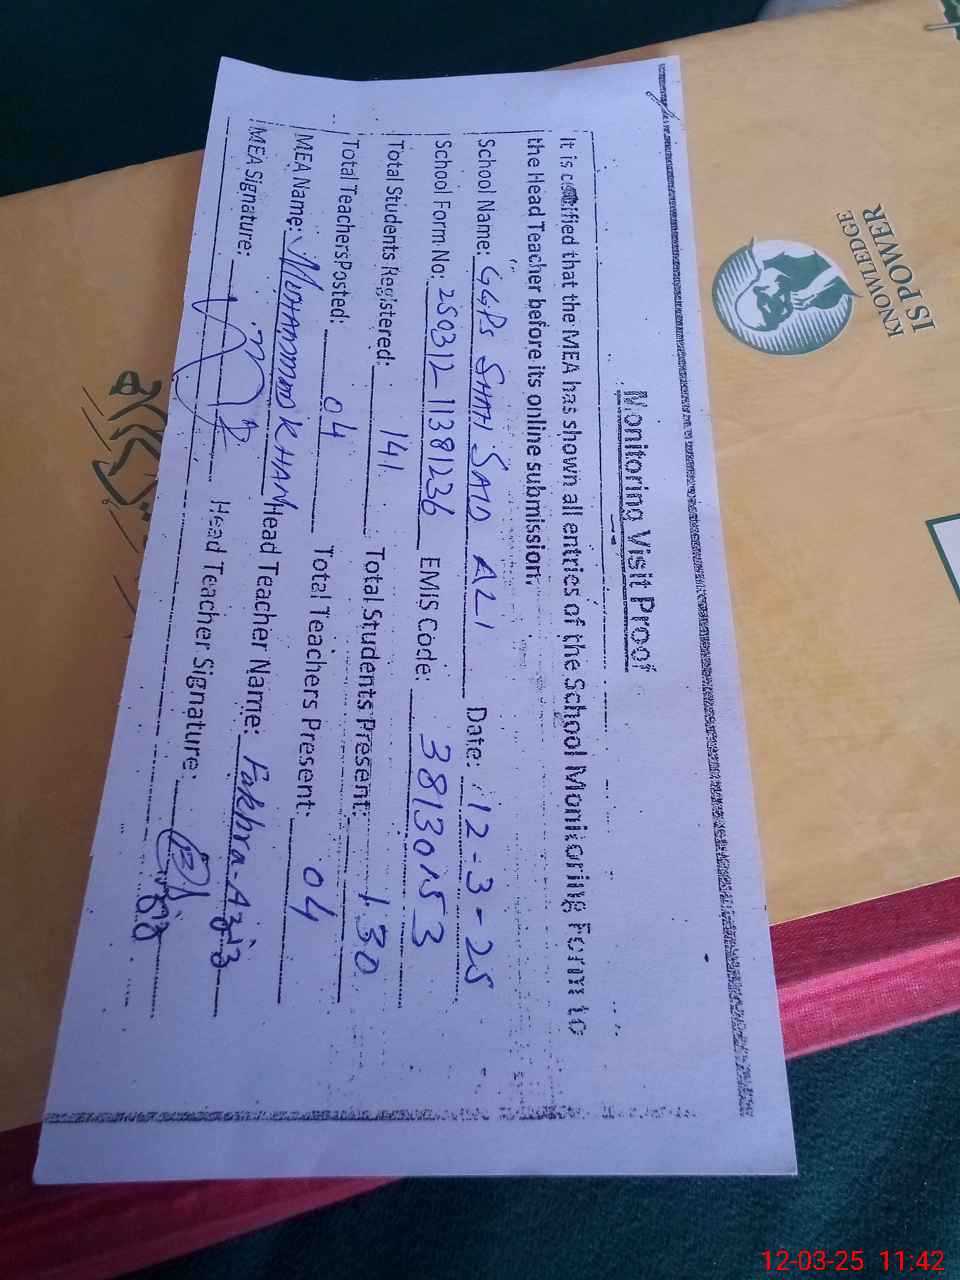 Monitoring Visit Proof
It is certified that the MEA has shown all entries of the School Monitoring Form to
the Head Teacher before its online submission.
School Name: GGPS SHAH SAID ALI Date: 12-3-25
School Form No: 250312 11381236 EMIS Code: 38130153
Total Students Registered: 141 Total Students Present: 130
Total Teachers Posted: 04 Total Teachers Present: 04
MEA Name: MUHAMMAD KHAN Head Teacher Name: Fakhra-Aziz
MEA Signature: Head Teacher Signature:
KNOWLEDGE
IS POWER
12-03-25 11:42